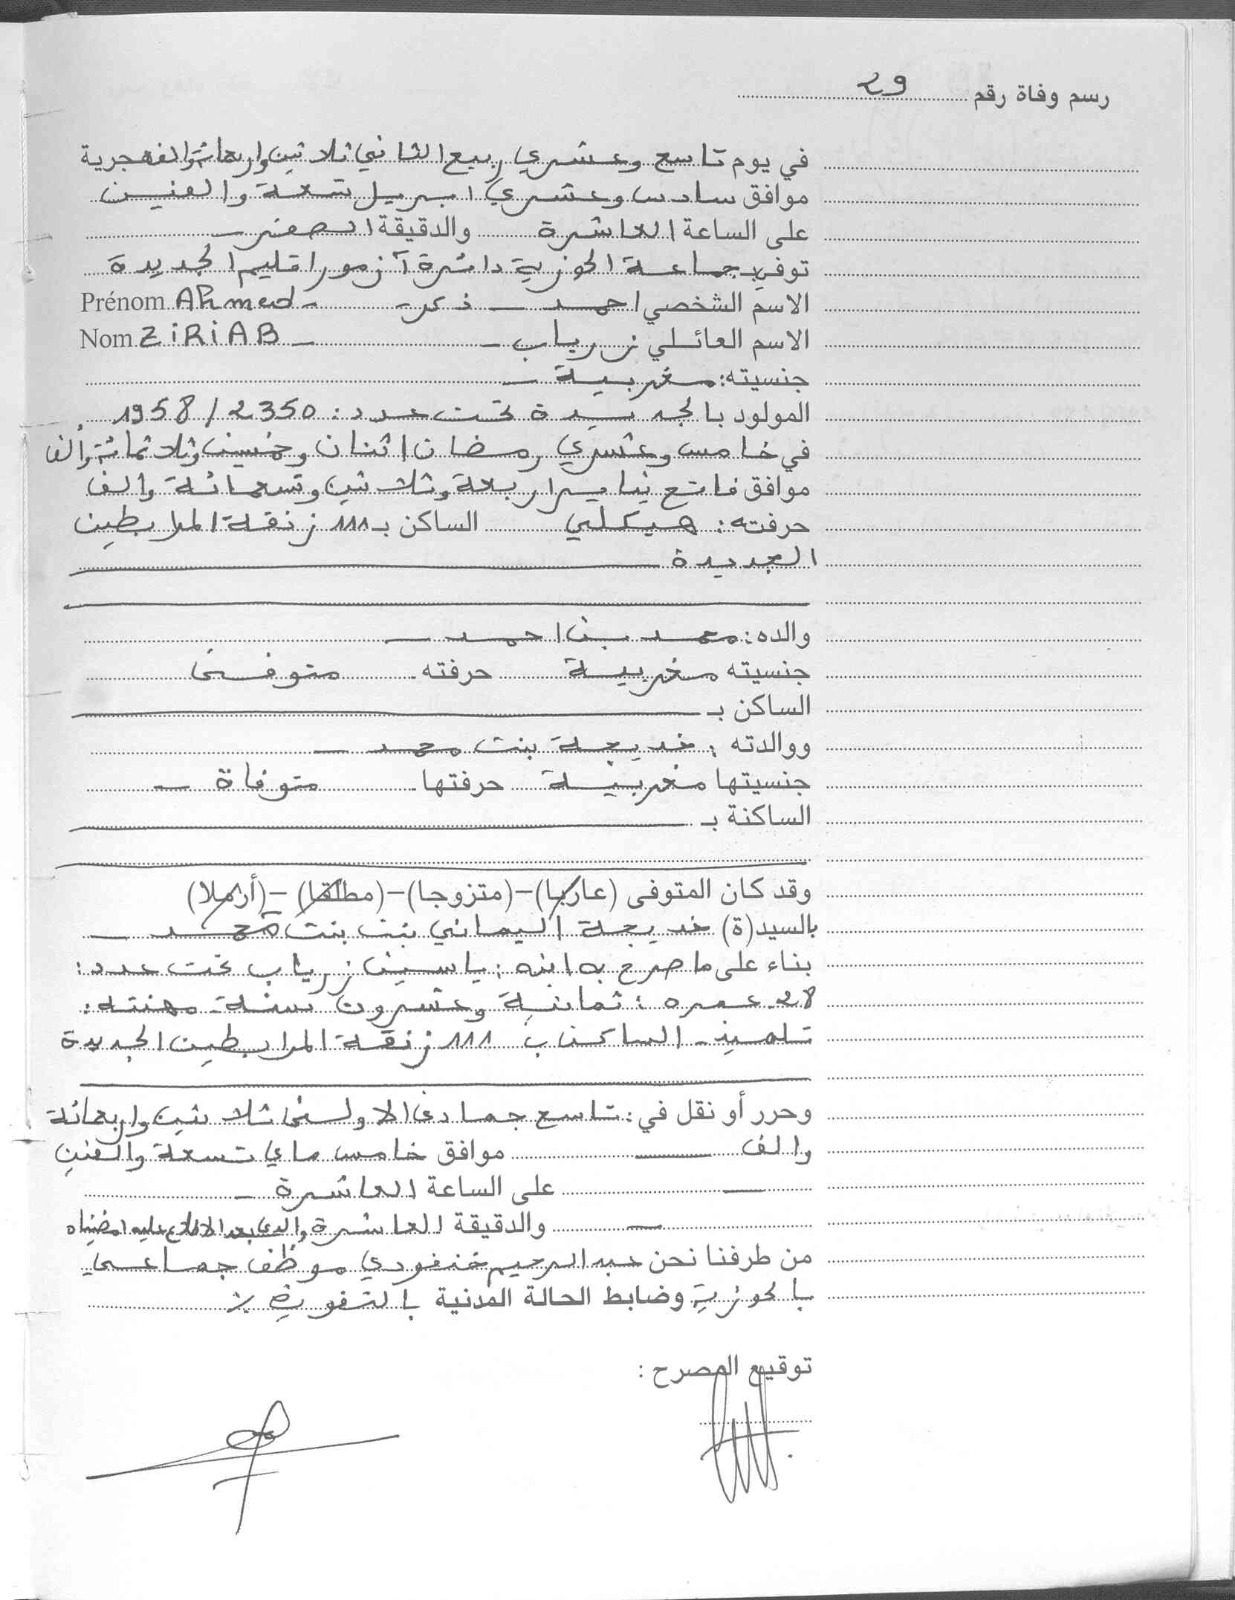 رسم وفاة رقم 29
في يوم تاسع وعشري ربيع الثاني ثلاثين واربعمائة والف هجرية
موافق سادس وعشري ابريل تسعة والفين
على الساعة العاشرة والدقيقة الصفر
توفي بجماعة الحوزية دائرة آزمور اقليم الجديدة
الاسم الشخصي احمد ذكر Prénom Ahmed
الاسم العائلي زرياب Nom ZiRiAB
جنسيته: مغربية
المولود بالجديدة تحت عدد: 2350/1958
في خامس وعشري رمضان اثنان وخمسين وثلاثمائة وألف
موافق فاتح يناير اربعة وثلاثين وتسعمائة والف
حرفته: الساكن بـ 111 زنقة المرابطين
الجديدة
والده: محمد بن احمد
جنسيته مغربية حرفته متوفى
الساكن بـ
ووالدته : خديجة بنت محمد
جنسيتها مغربية حرفتها متوفاة
الساكنة بـ
وقد كان المتوفى (عازبا)-(متزوجا)-(مطلقا)-(أرملا)
بالسيد(ة) خديجة اليماني بنت بنت محمد
بناء على ما صرح به ابنه : ياسين زرياب تحت عدد:
28 عمره : ثمانية وعشرون سنة مهنته:
تلميذ - الساكن ب 111 زنقة المرابطين الجديدة
وحرر أو نقل في: تاسع جمادى الاولى ثلاثين واربعمائة
والف موافق خامس ماي تسعة والفين
على الساعة العاشرة
والدقيقة العاشرة والذي بعد الاطلاع عليه امضيناه
من طرفنا نحن عبد الرحيم موظف جماعي
بالحوزية وضابط الحالة المدنية بالتفويض ٪
توقيع المصرح :